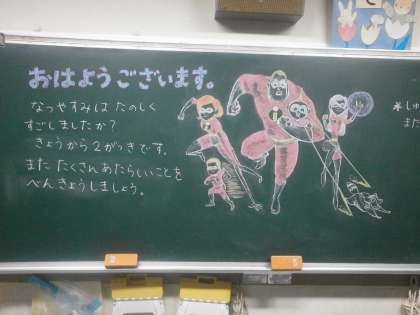 おはようございます。
なつやすみは たのしく
すごしましたか?
きょうから2がっきです。
また たくさんあたらしいことを
べんきょうしましょう。